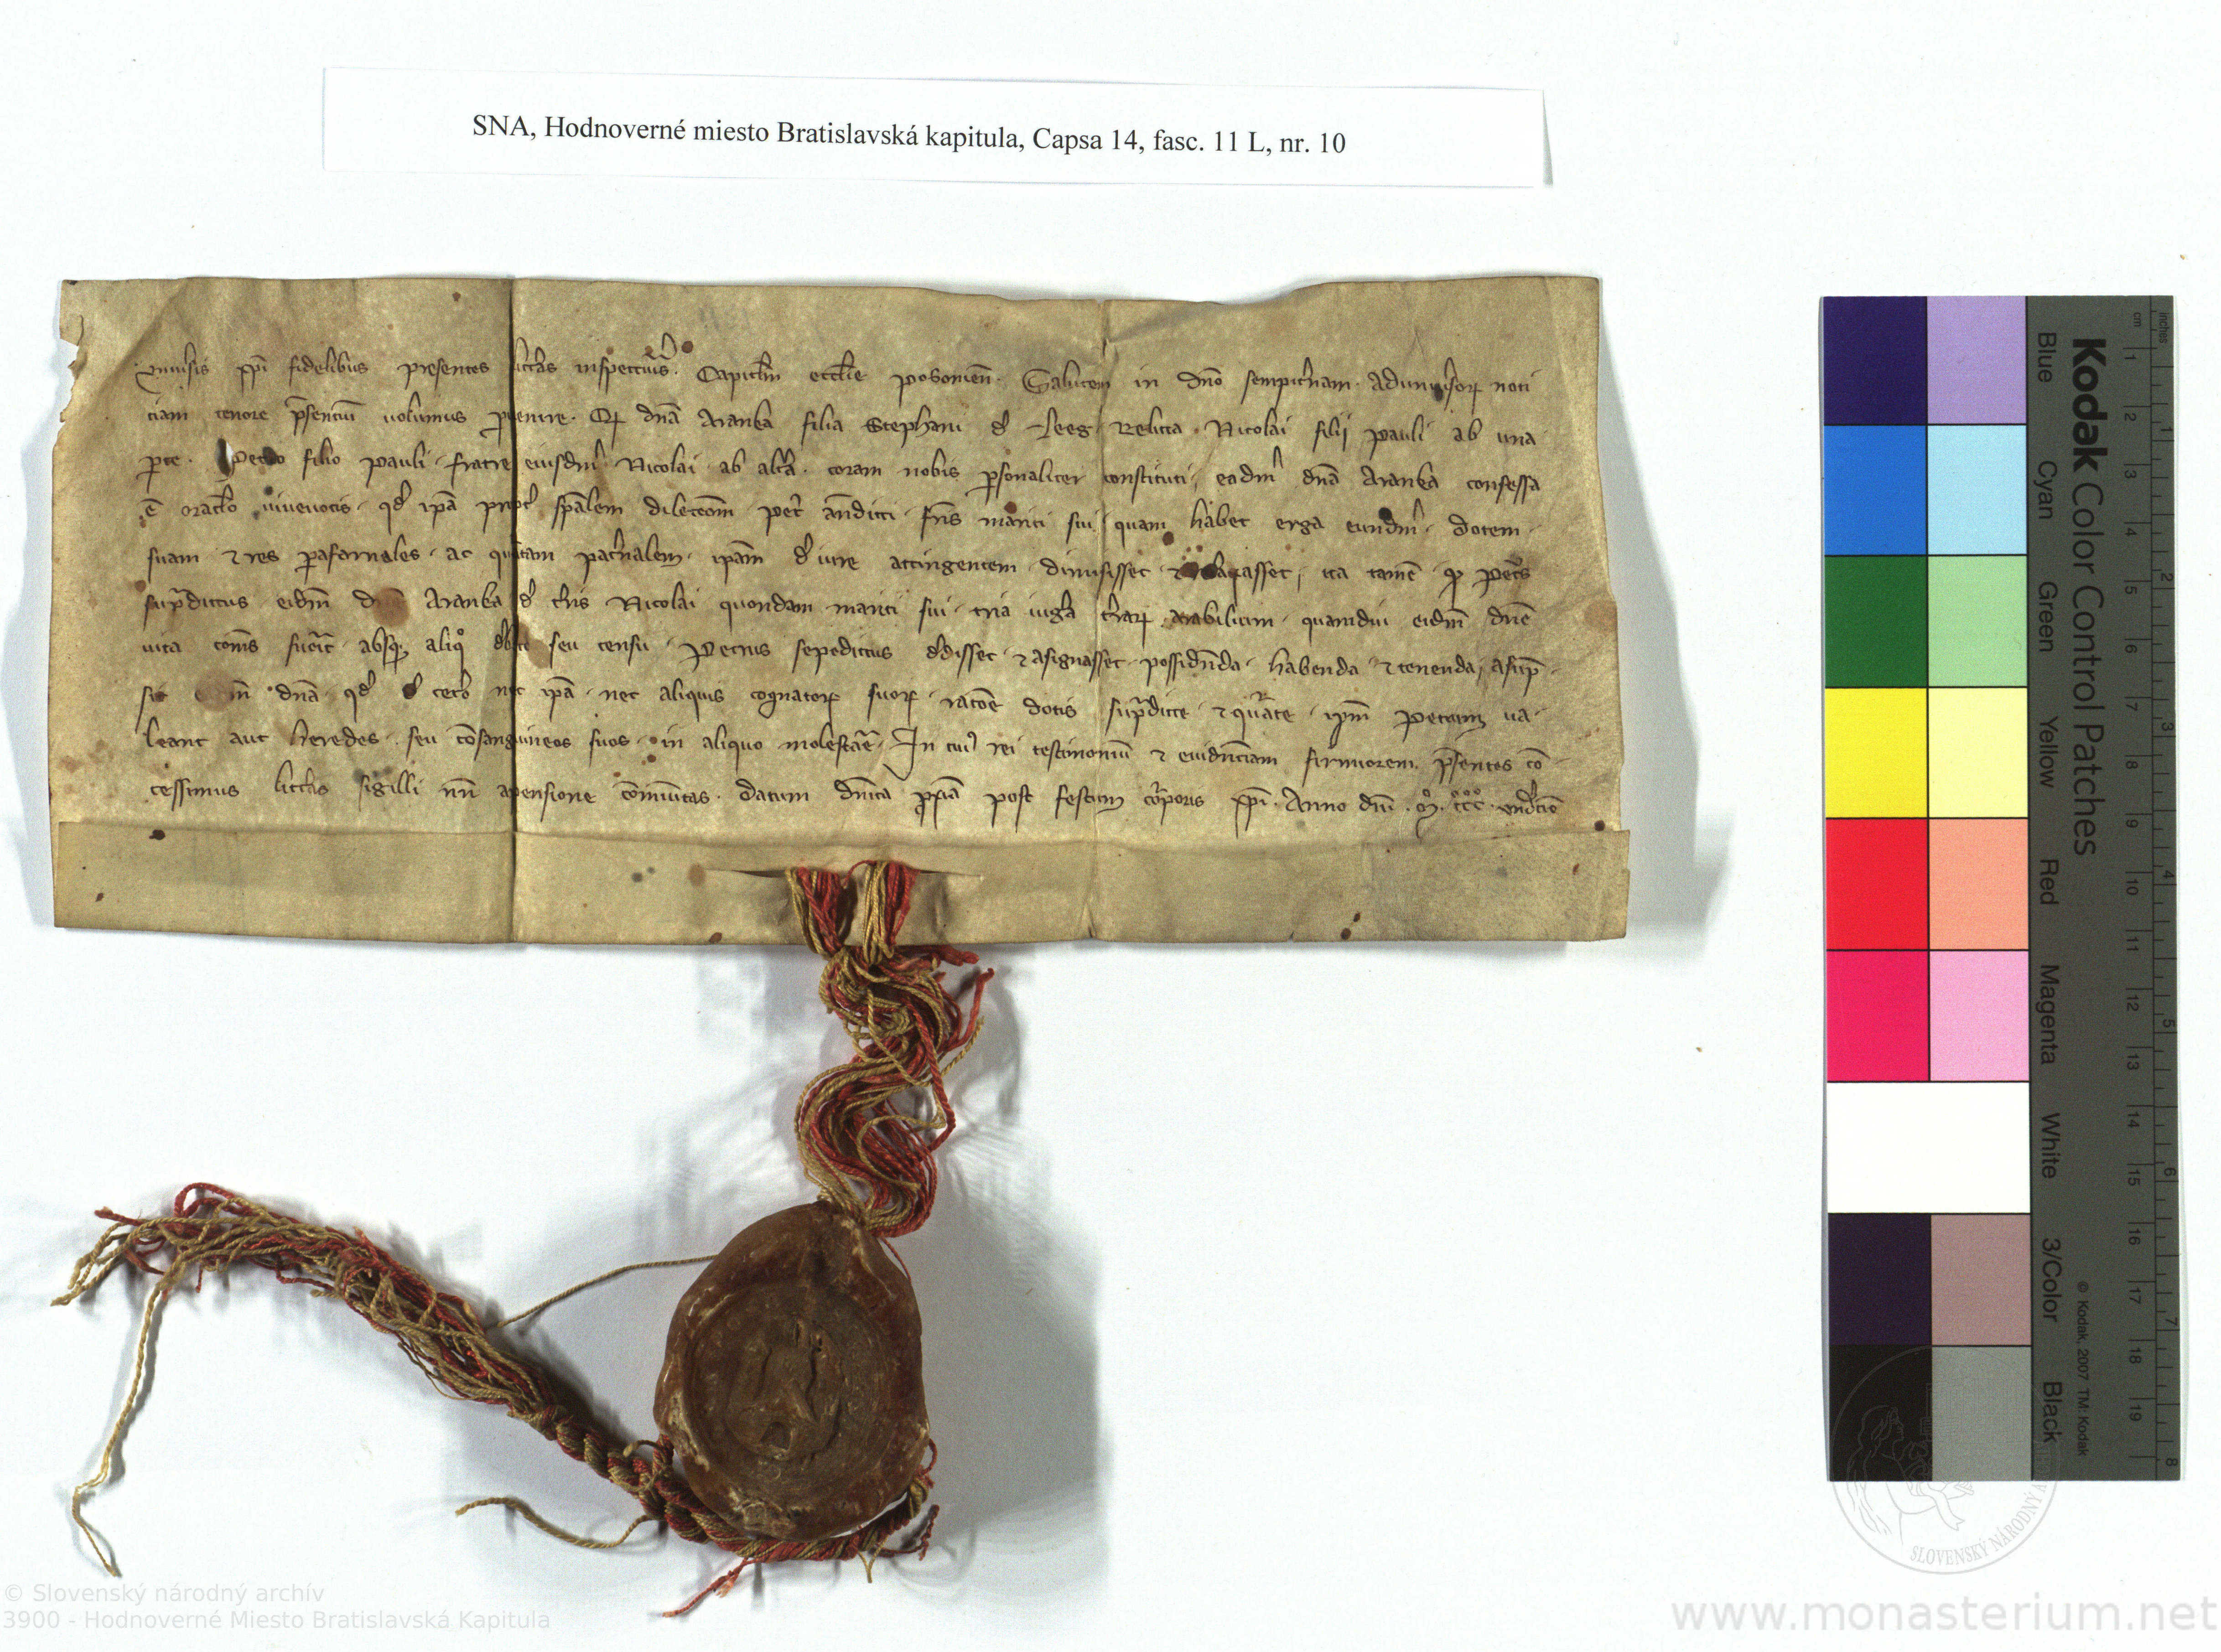 SNA, Hodnoverné miesto Bratislavská kapitula, Capsa 14, fasc. 11 L, nr. 10
vniuˀsis xp̄i fidelibus presentes litˀas inspectuˀis. Capitˀlm eccˀlie posonien̄. Salutem in dn̄o sempitˀnam. Ad uniuˀsoꝝ noti
ciam tenore p̄sencium uolumus peruenire. Qꝫ dn̄a Aranka filia Stephani dˀ Leeg Relicta Nicolai filij pauli ab una
ꝑte. petro filio pauli fratre eiusdmˀ Nicolai ab altˀa. coram nobis ꝑsonaliter constituti, eadmˀ dn̄a Aranka confessa
ē oracˀlo viuevocis. qdˀ ip̄a proptˀ sp̄alem dilectōm petˀ an̄dicti fr̄is mariti sui quam habet erga eundmˀ. dotem
suam ⁊ res ꝑafarnales. ac quartam patˀnalem. ip̄am dˀ iure attingentem. dimisisset ⁊ relaxasset, ita tamē ꝙ petrˀs
sup̄dictus eidm̄ dn̄e Aranka dˀ tˀris Nicolai quondam mariti sui. tria iugˀa tˀraꝝ arabilium. quamdiu eidm̄ dn̄e
uita comˀs fuˀit. absqꝫ aliqͦ dˀbito seu censu. Petrus sepedictus dˀdisset ⁊ asignasset. possidˀnda. habenda ⁊ tenenda, asūp
sit eadm̄ dn̄a. qdˀ dˀ cetˀo nec ip̄a. nec aliquis cognatoꝝ suoꝝ. racōe dotis sup̄dicte. ⁊ quˀarte. ip̄m Petrum ua
leant aut heredes. seu cōsanguineos suos. in aliquo molestaˀe. In cuiꝰ rei testimoniū ⁊ euidˀnciam firmiorem. p̄sentes cō
cessimus litˀas sigilli nr̄i apensione cōmunitas. datum dn̄ica ꝓxīa post festum corˀporis xp̄i. Anno dn̄i. Mͦ. CCCͦ. vndˀcīo
Kodak Color Control Patches
Blue Cyan Green Yellow Red Magenta White 3/Color Black
© Kodak, 2007 TM: Kodak
inches 1 2 3 4 5 6 7 8
cm 1 2 3 4 5 6 7 8 9 10 11 12 13 14 15 16 17 18 19
SLOVENSKÝ NÁRODNÝ A
© Slovenský národný archív
3900 - Hodnoverné Miesto Bratislavská Kapitula
www.monasterium.net